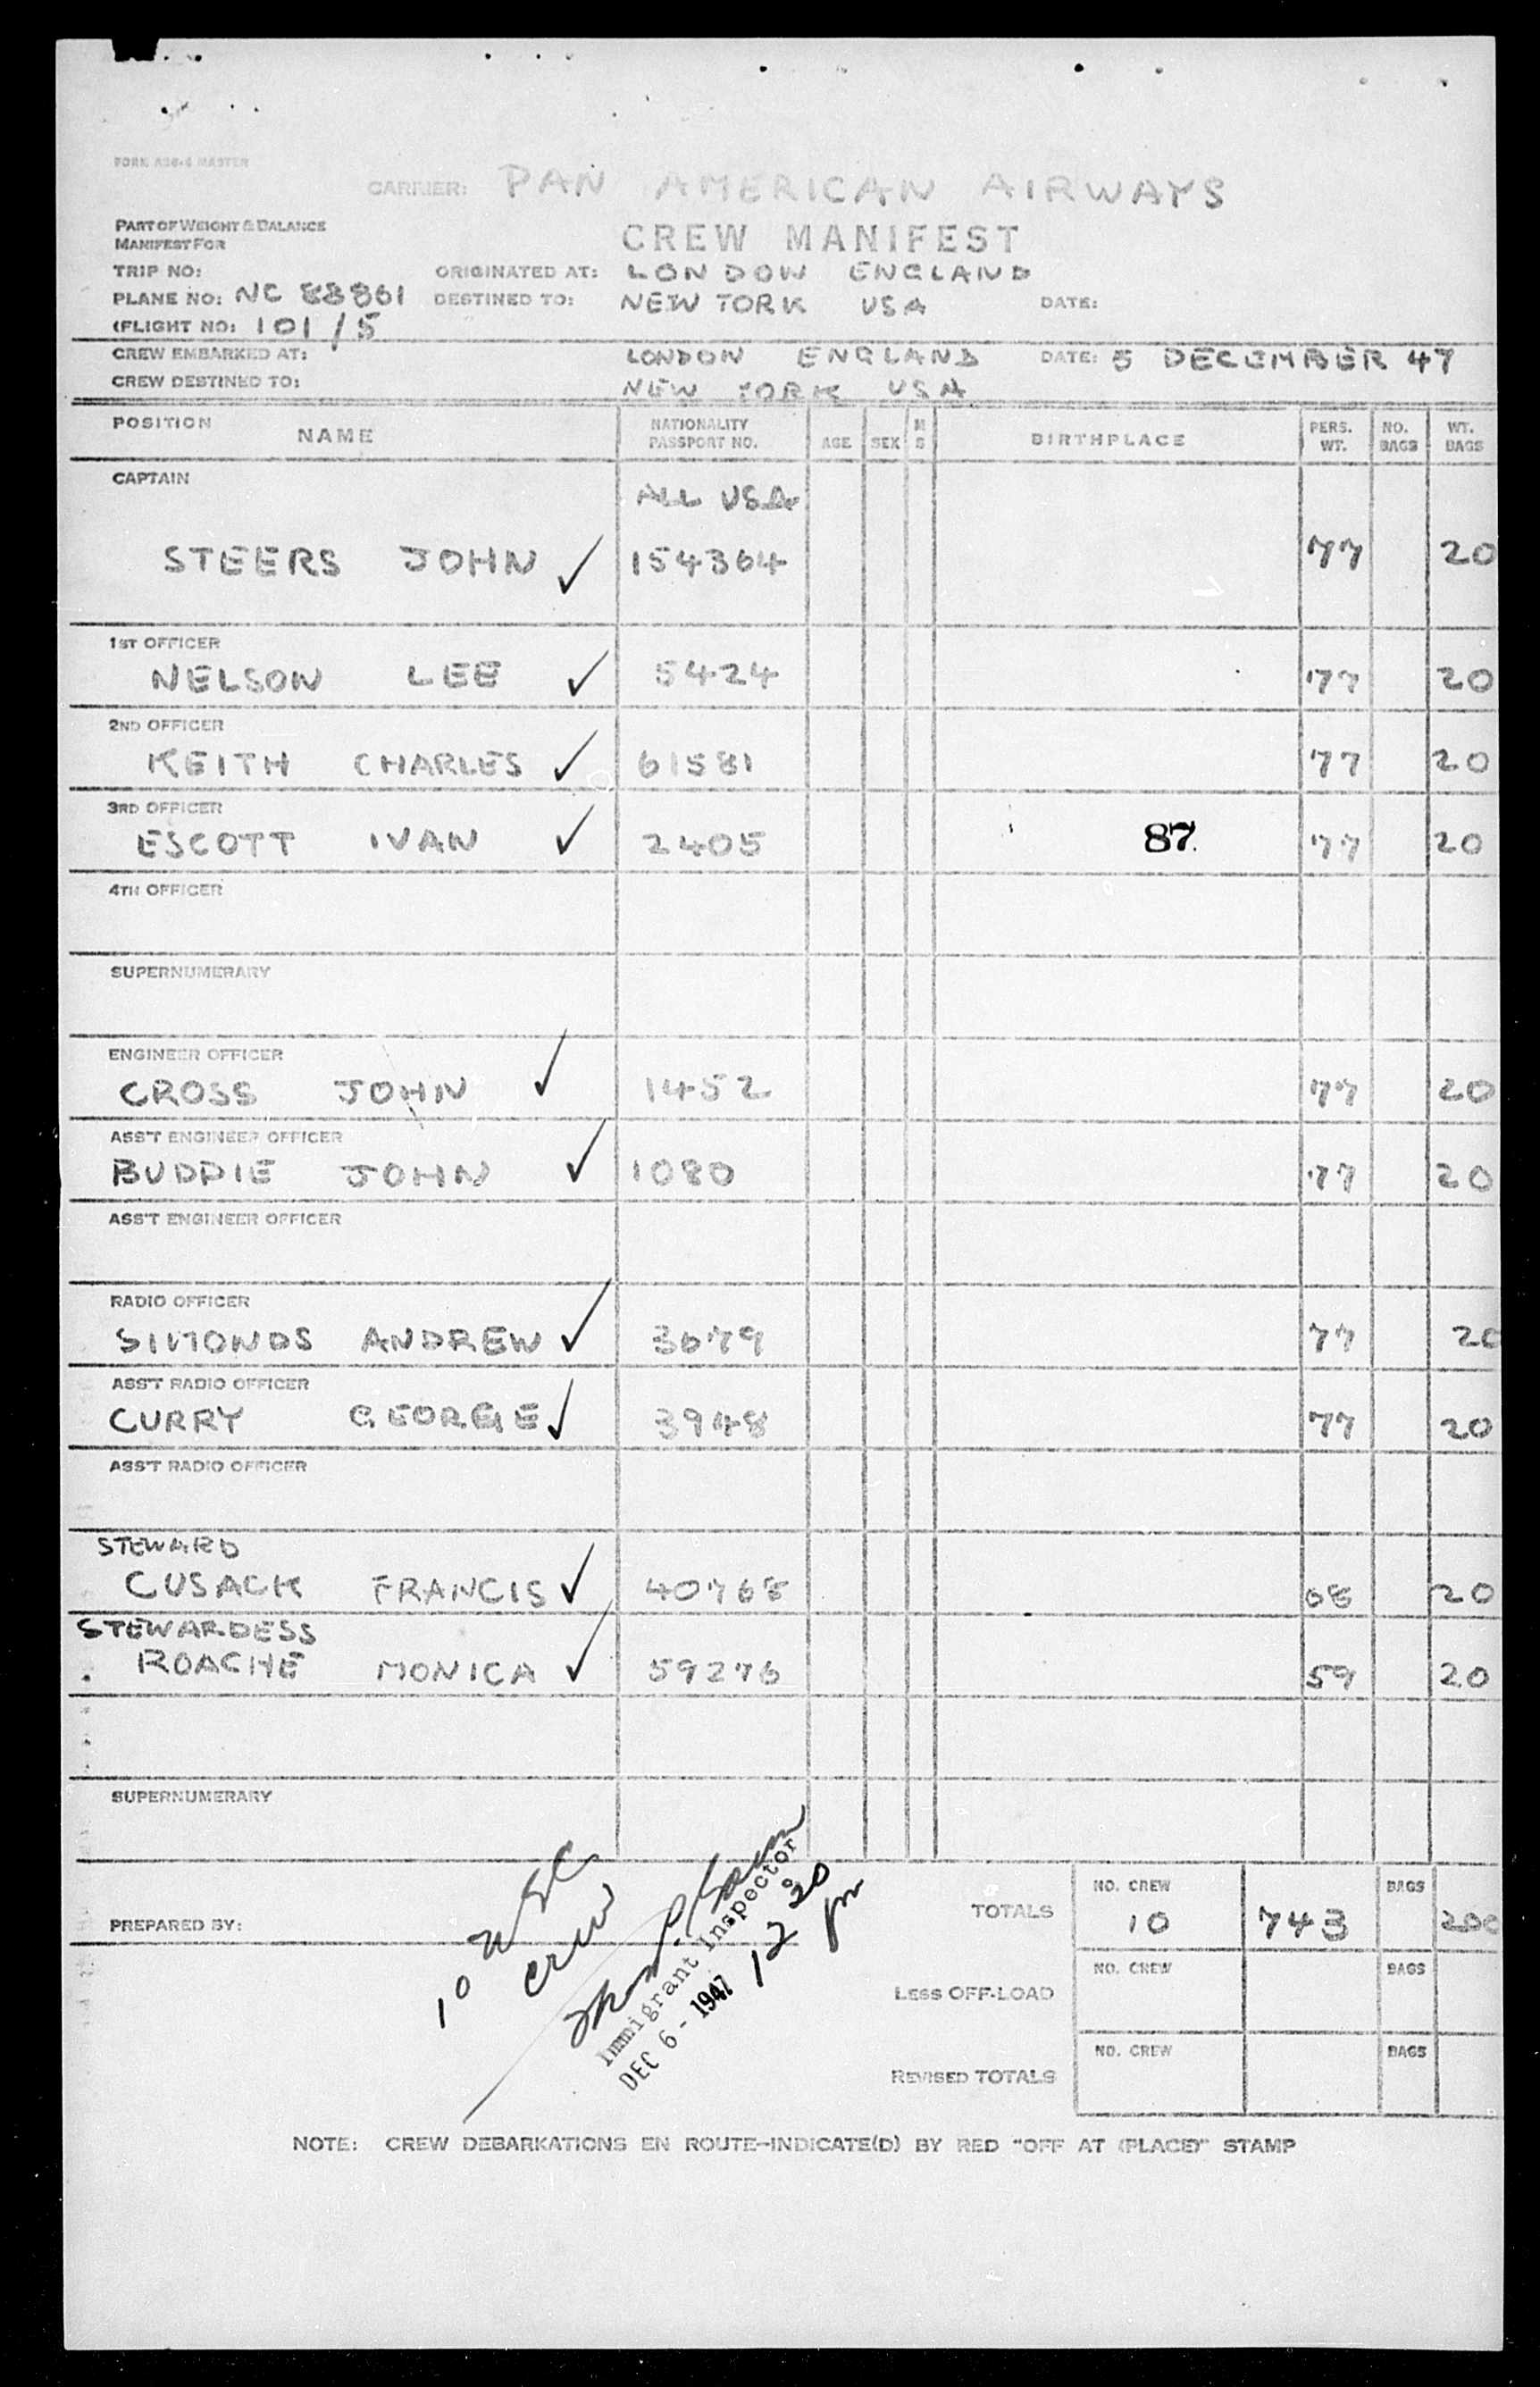 FORM A26-4 MASTER
CARRIER: PAN AMERICAN AIRWAYS
PART OF WEIGHT & BALANCE
MANIFEST FOR
CREW MANIFEST
TRIP NO: ORIGINATED AT: LONDON ENGLAND
PLANE NO: NC 88861 DESTINED TO: NEW YORK USA DATE:
(FLIGHT NO: 101/5
CREW EMBARKED AT: LONDON ENGLAND DATE: 5 DECEMBER 47
CREW DESTINED TO: NEW YORK USA
POSITION NAME NATIONALITY PASSPORT NO. AGE SEX M S BIRTHPLACE PERS. WT. NO. BAGS WT. BAGS
CAPTAIN
ALL USA
STEERS JOHN ✓ 154364 77 20
1ST OFFICER
NELSON LEE ✓ 5424 77 20
2ND OFFICER
KEITH CHARLES ✓ 61581 77 20
3RD OFFICER
ESCOTT IVAN ✓ 2405 87. 77 20
4TH OFFICER
SUPERNUMERARY
ENGINEER OFFICER
CROSS JOHN ✓ 1452 77 20
ASS'T ENGINEER OFFICER
BUDDIE JOHN ✓ 1080 77 20
ASS'T ENGINEER OFFICER
RADIO OFFICER
SIMONDS ANDREW ✓ 3679 77 20
ASS'T RADIO OFFICER
CURRY GEORGE ✓ 3948 77 20
ASS'T RADIO OFFICER
STEWARD
CUSACK FRANCIS ✓ 40768 68 20
STEWARDESS
ROACHE MONICA ✓ 59276 59 20
SUPERNUMERARY
10 USC
crew
Immigrant Inspector
DEC 6 - 1947
12 20
pm
PREPARED BY:
TOTALS NO. CREW 10 743 BAGS 200
LESS OFF-LOAD NO. CREW BAGS
REVISED TOTALS NO. CREW BAGS
NOTE: CREW DEBARKATIONS EN ROUTE-INDICATE(D) BY RED "OFF AT (PLACE)" STAMP